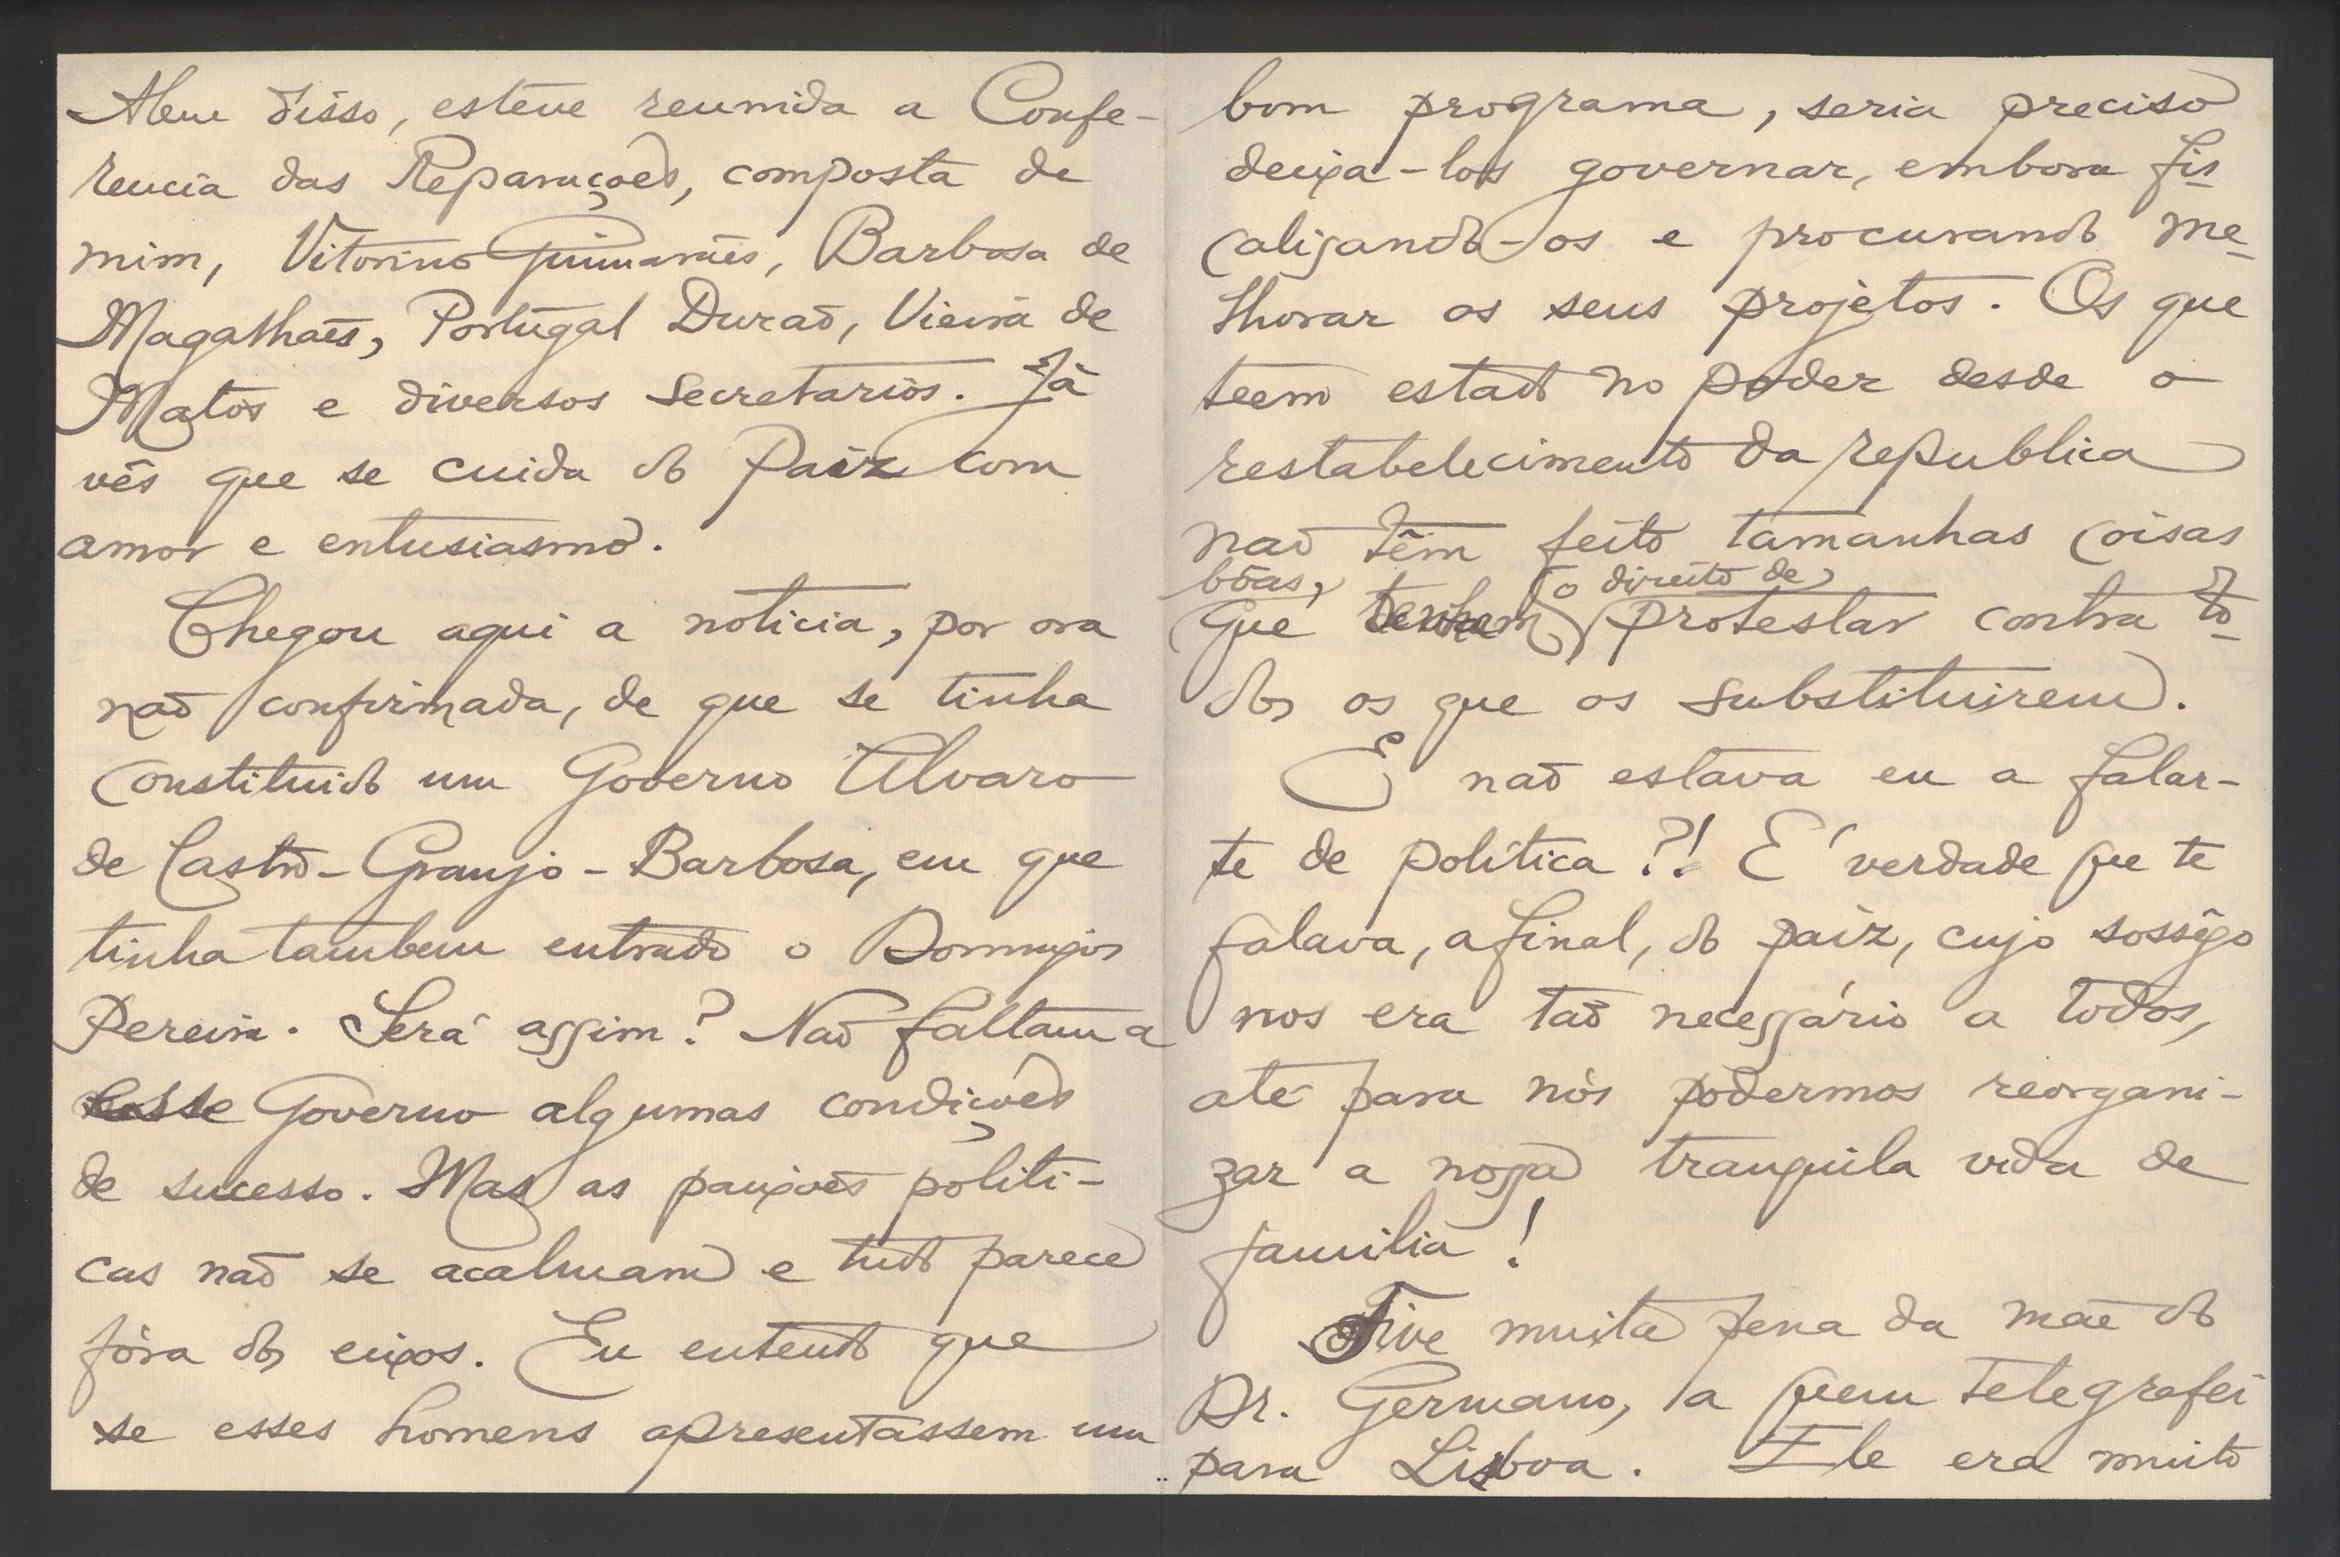 Alem disso, esteve reunida a Confe-
rencia das Reparações, composta de
mim, Vitorino Guimarães, Barbosa de
Magalhaẽs, Portugal Duraõ, Vieira de
Matos e diversos secretarios. Já
vês que se cuida do Paiz com
amor e entusiasmo.
Chegou aqui a noticia, por ora
naõ confirmada, de que se tinha
constituido um Governo Alvaro
de Castro - Granjo - Barbosa, em que
tinha tambem entrado o Domingos
Pereira. Será assim? Naõ faltam a
esse Governo algumas condições
de sucesso. Mas as paixoẽs politi-
cas naõ se acalmam e tudo parece
fóra dos eixos. Eu entendo que
se esses homens apresentassem um
bom programa, seria preciso
deixa-los governar, embora fis-
calizando-os e procurando me-
lhorar os seus projétos. Os que
teem estado no poder desde o
restabelecimento da republica
naõ têm feito tamanhas coisas
bôas, o direito de
que tenham protestar contra to-
dos os que os substituirem.
E naõ estava eu a falar-
te de politica?! E' verdade que te
falava, afinal, do paíz, cujo sossêgo
nos era taõ necessário a todos,
até para nós podermos reorgani-
zar a nossa tranquila vida de
familia!
Tive muita pena da maẽ do
Dr. Germano, a quem telegrafei
para Lisboa. Ele era muito